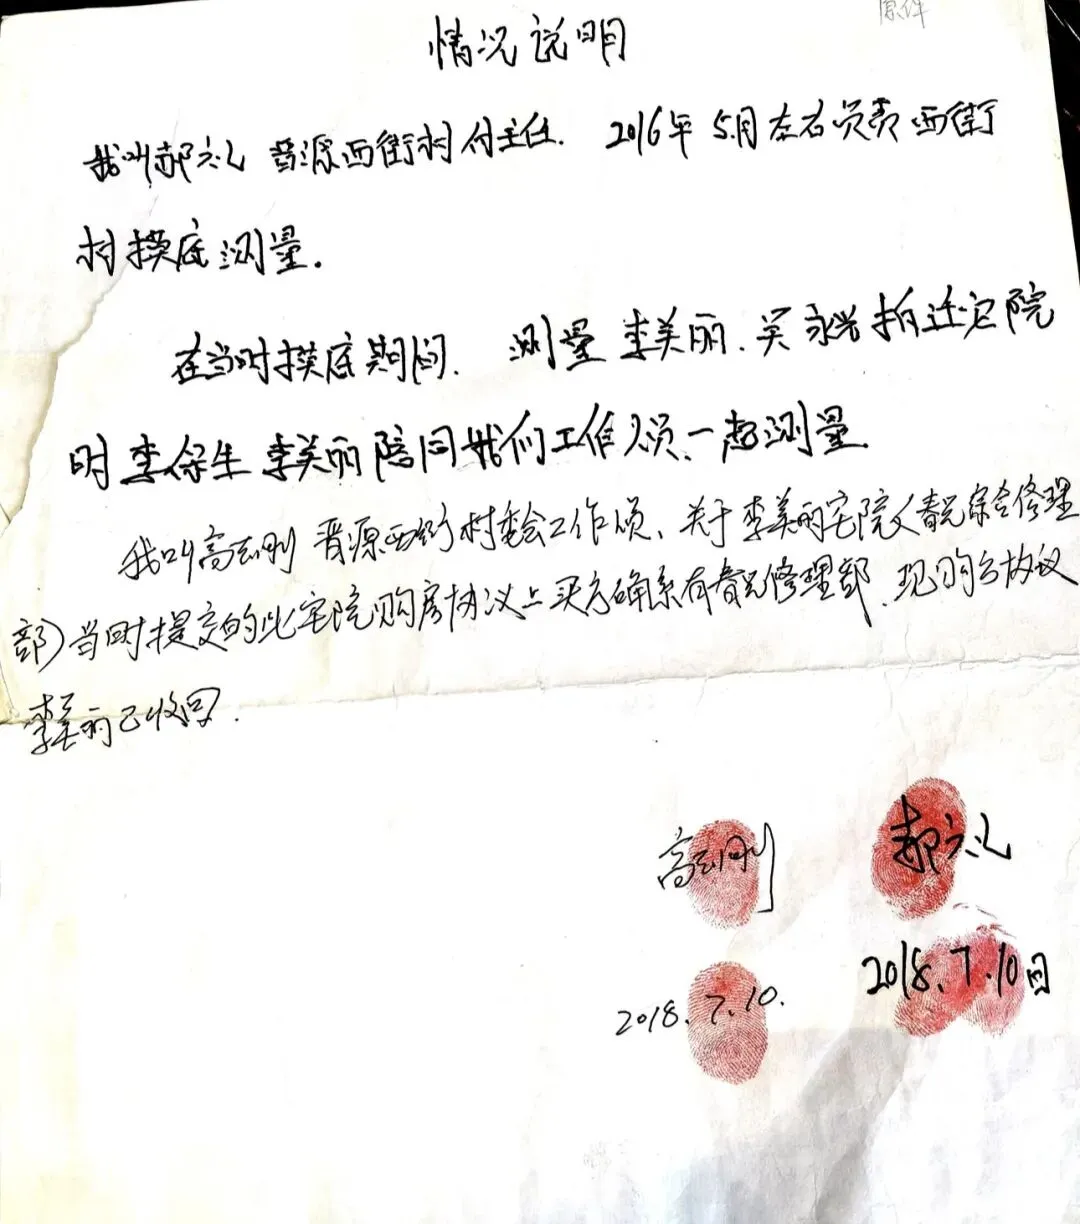 原件
情况说明
我叫郝六儿 晋源西街村付主任. 2016年5月左右负责西街
村摸底测量.
在当时摸底期间. 测量李美丽.吴永光拆迁宅院
时李保生李美丽陪同我们工作人员、一起测量.
我叫高志刚 晋源西街村委会工作人员、关于李美丽宅院(春光综合修理
部)当时提交的此宅院购房协议上买方确系有春光修理部、现购房协议
李美丽已收回.
高志刚 郝六儿
2018.7.10. 2018.7.10日